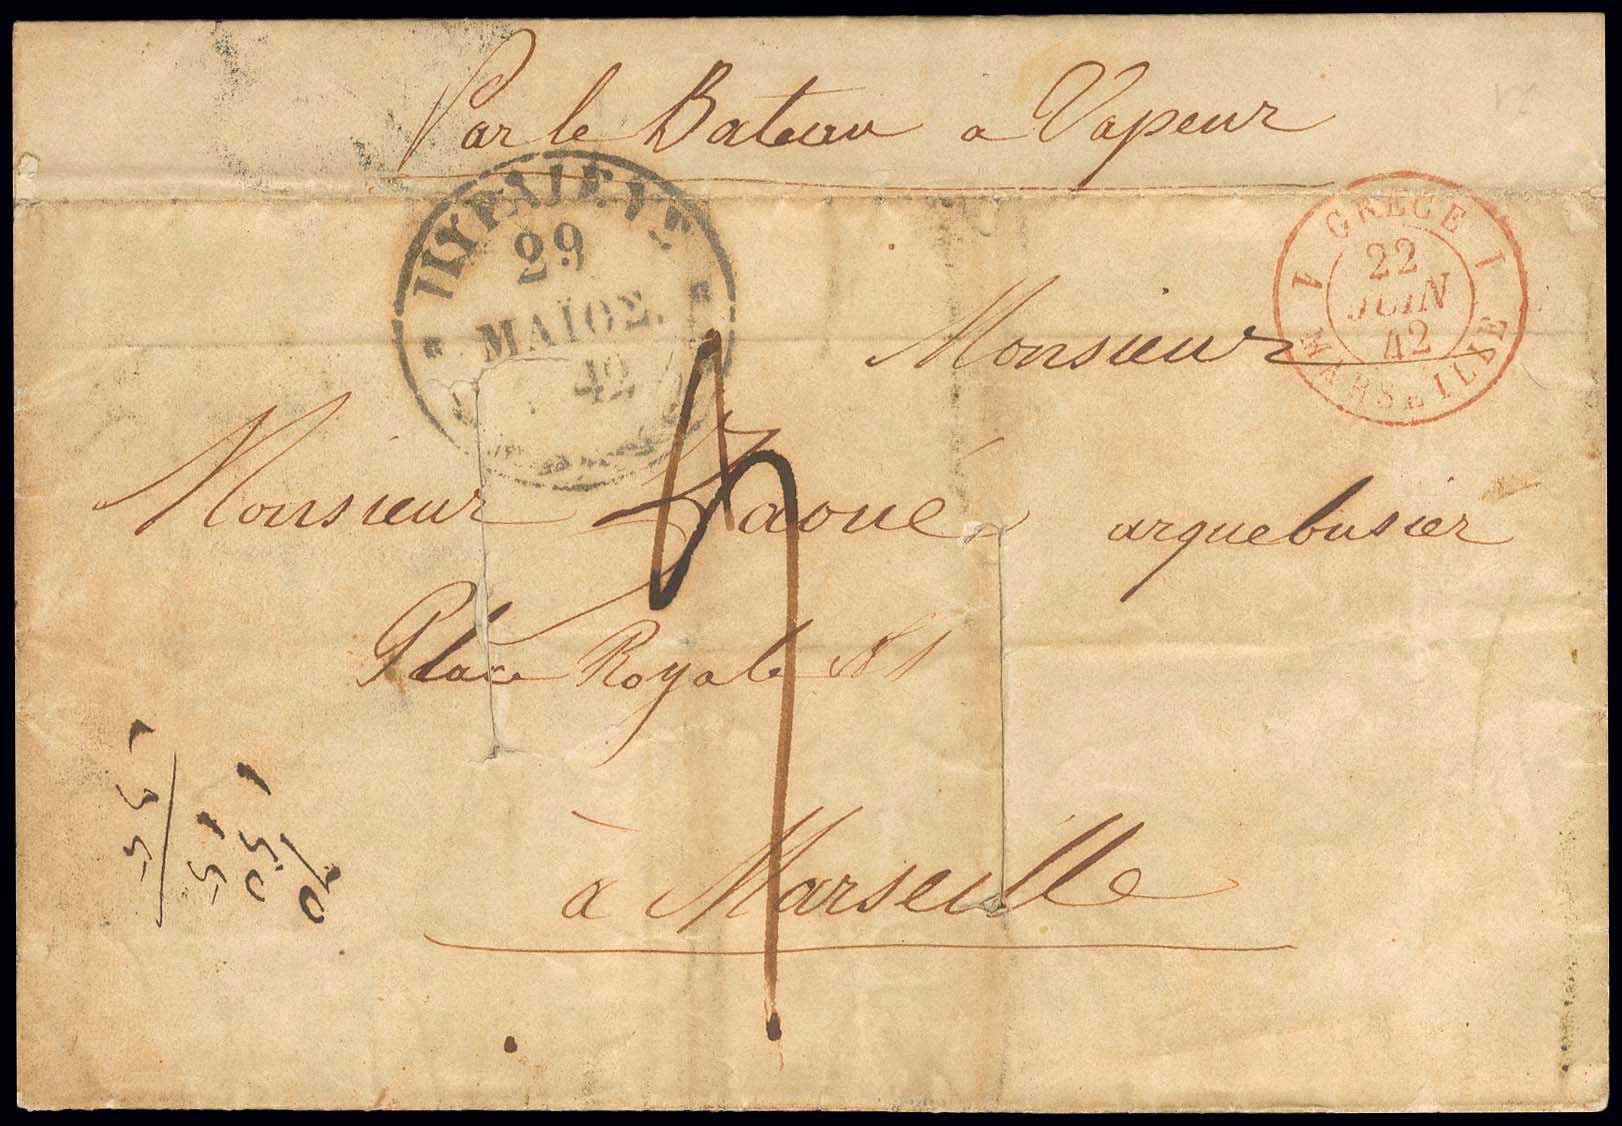 Par le Bateau a Vapeur
ΠΕΙΡΑΙΕΥΣ
29
ΜΑΪΟΣ.
42
1 GRECE 1
22
JUIN
42
MARSEILLE
Monsieur
Monsieur Zaoué arquebusier
Place Royale N 1
à Marseille